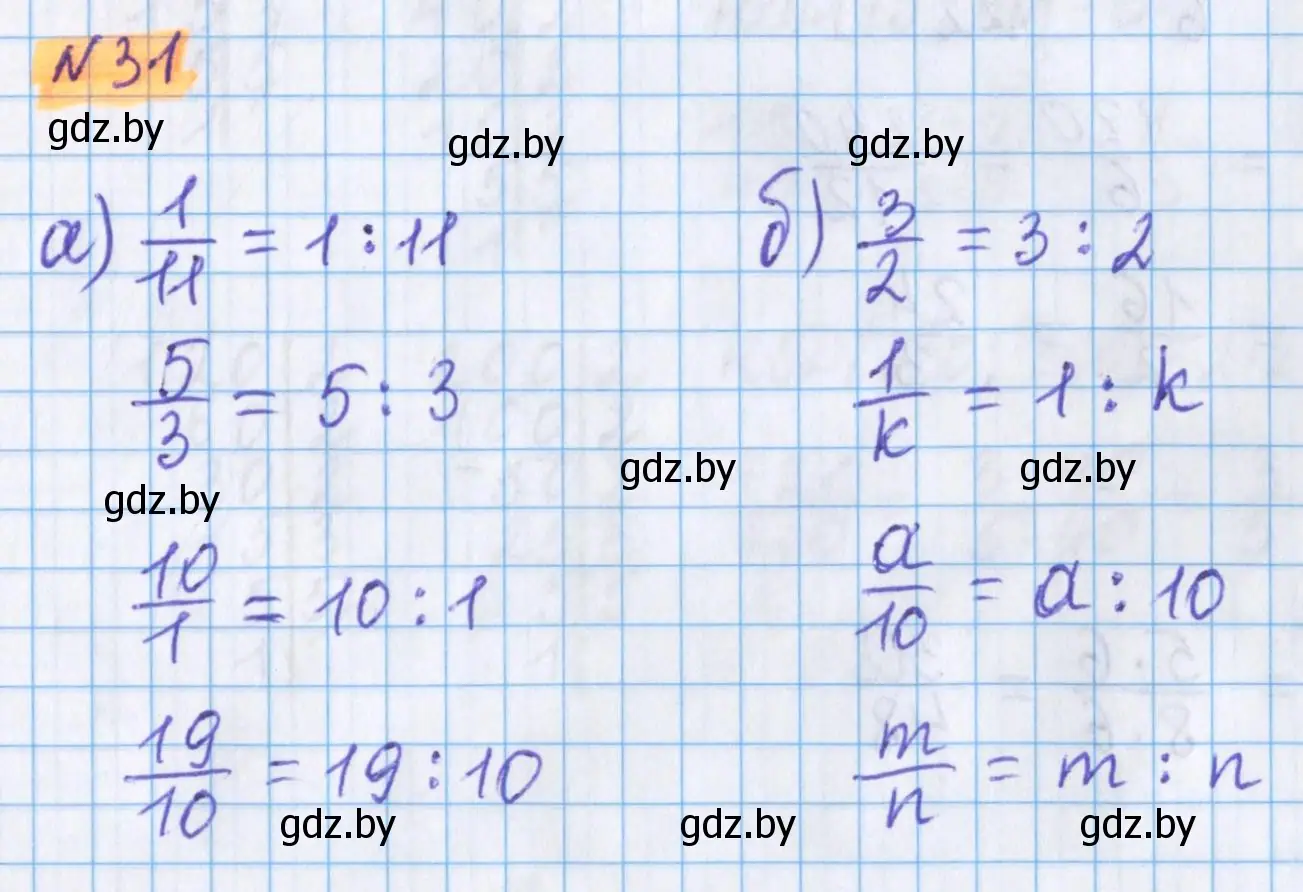 N31
gdz.by gdz.by gdz.by
а) 1/11 = 1 : 11
5/3 = 5 : 3
gdz.by
10/1 = 10 : 1
19/10 = 19 : 10
gdz.by
б) 3/2 = 3 : 2
1/k = 1 : k
gdz.by gdz.by
a/10 = a : 10
m/n = m : n
gdz.by gdz.by